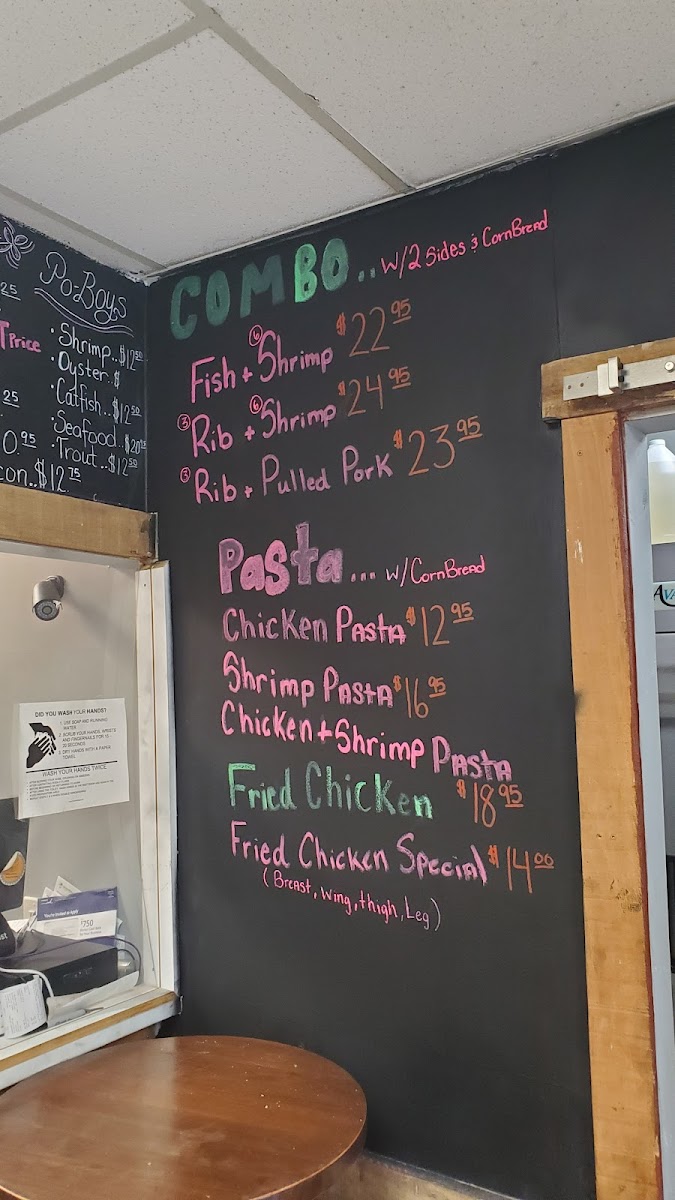 25
T PRICE
25
0.95
con..$12.75
Po-Boys
· Shrimp..$12.50
· Oyster..$
· Catfish..$12.50
· Seafood..$20
· Trout...$12.50
COMBO.. W/2 Sides & CornBread
Fish + (6) Shrimp $22.95
(3) Rib + (6) Shrimp $24.95
(3) Rib + Pulled Pork $23.95
Pasta... w/CornBread
Chicken Pasta $12.95
Shrimp Pasta $16.95
Chicken + Shrimp Pasta
$18.95
Fried Chicken
Fried Chicken Special $14.00
(Breast, wing, thigh, Leg)
DID YOU WASH YOUR HANDS?
1. USE SOAP AND RUNNING WATER
2. SCRUB YOUR HANDS, WRISTS AND FINGERNAILS FOR
20 SECONDS
3. DRY HANDS WITH A PAPER TOWEL
WASH YOUR HANDS TWICE
You're Invited to Apply
$750